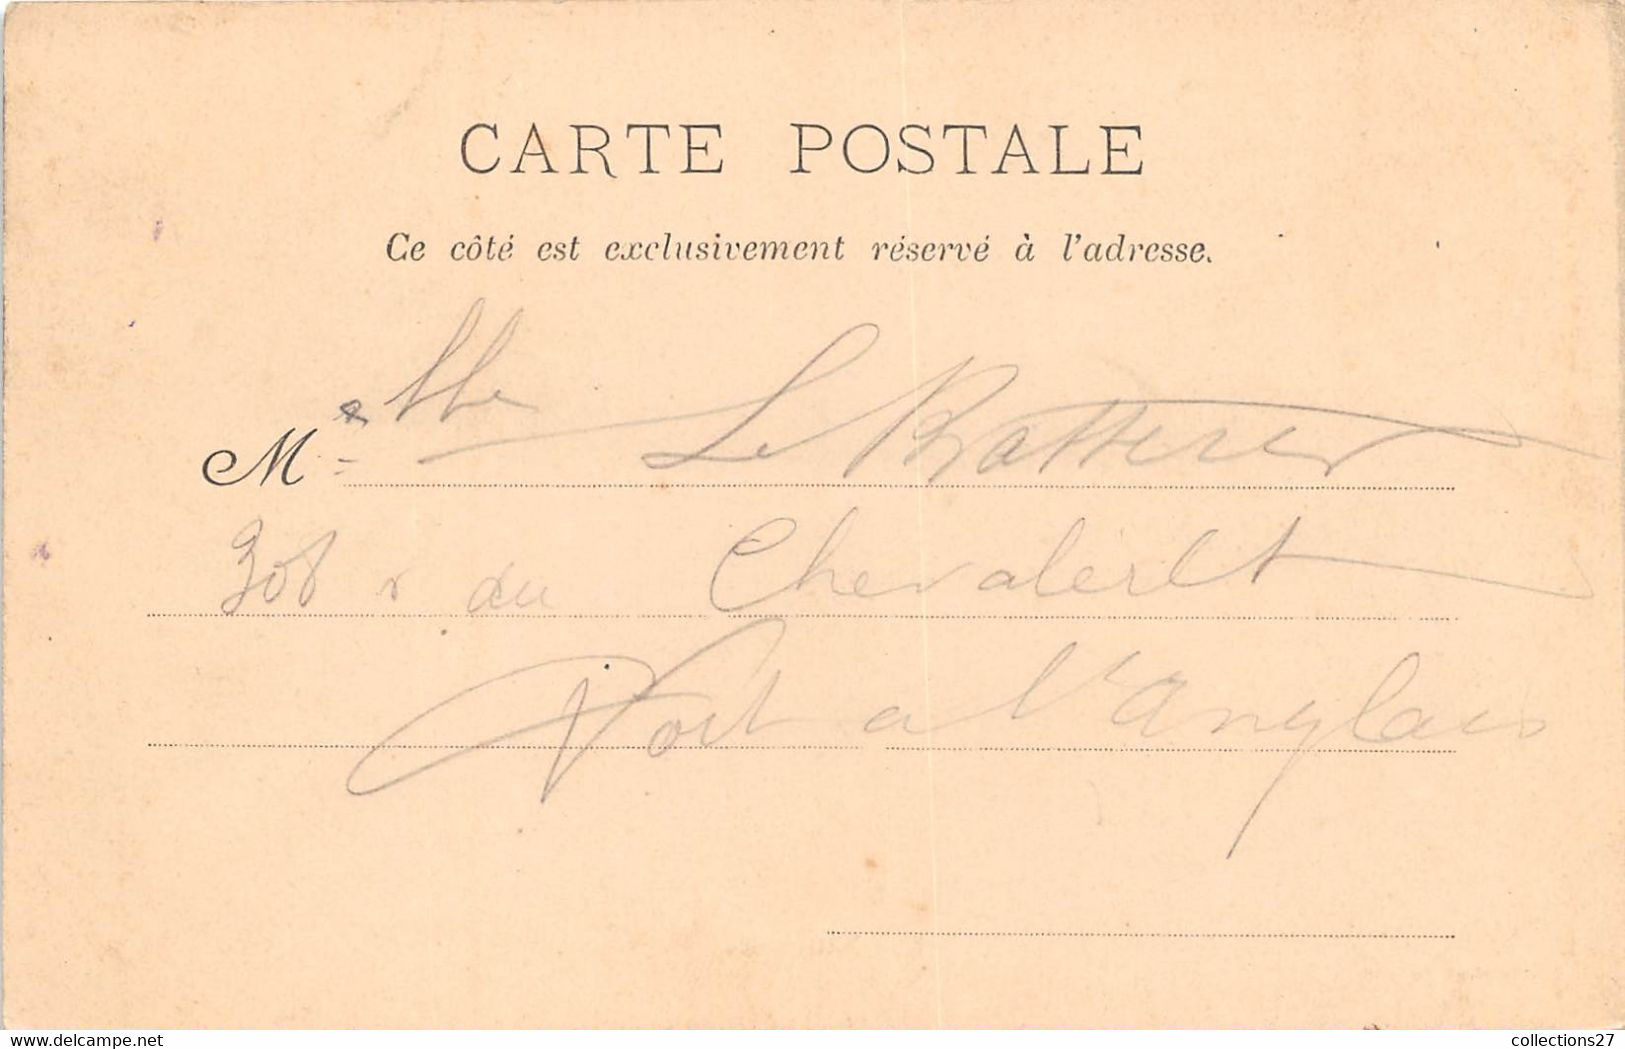 CARTE POSTALE
Ce côté est exclusivement réservé à l'adresse.
M lle Le
308 r du Chevaleret
Port a l'anglais
delcampe.net
collections27